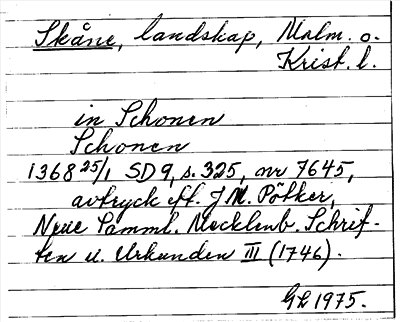 Skåne, landskap, Malm. o.
Krist. l.
in Schonen
Schonen
1368 25/1 SD 9, s. 325, nr 7645,
avtryck eft. J M. Pötker,
Neue Samml. Mecklenb. Schrif-
ten u. Urkunden III (1746).
GL 1975.